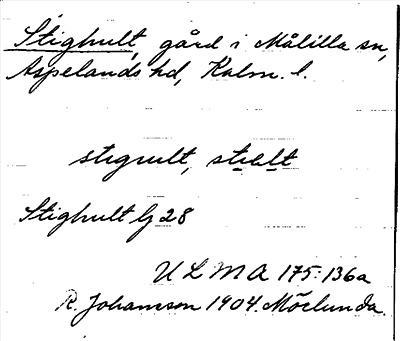 Stighult, gård i Målilla sn,
Aspelands hd, Kalm. l.
stıgult, stıhlt
Stighult Gj 28
ULMA 175:136a
R. Johansson 1904. Mörlunda.